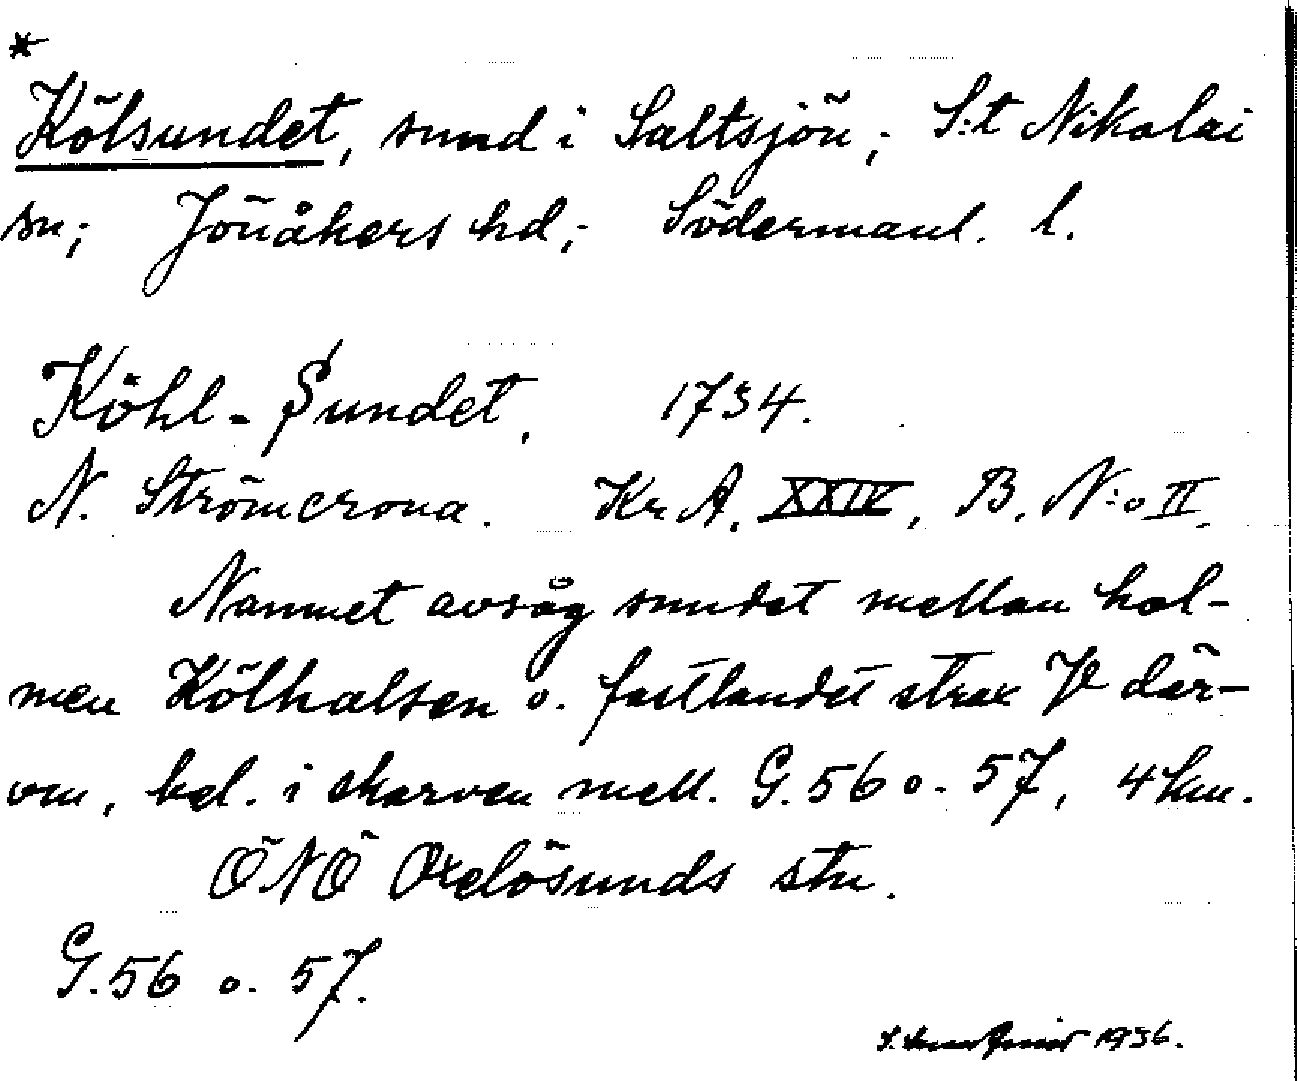 *
Kölsundet, sund i Saltsjön; S:t Nikolai
sn; Jönåkers hd; Södermanl. l.
Köhl-Sundet, 1734.
N. Strömcrona. Kr A. XXIV, B. N:o II.
Namnet avsåg sundet mellan hol-
men Kölhalsen o. fastlandet strax V där-
om, bel. i skarven mell. G. 56 o. 57, 4 km.
ÖNÖ Oxelösunds stn.
G. 56 o. 57.
1936.